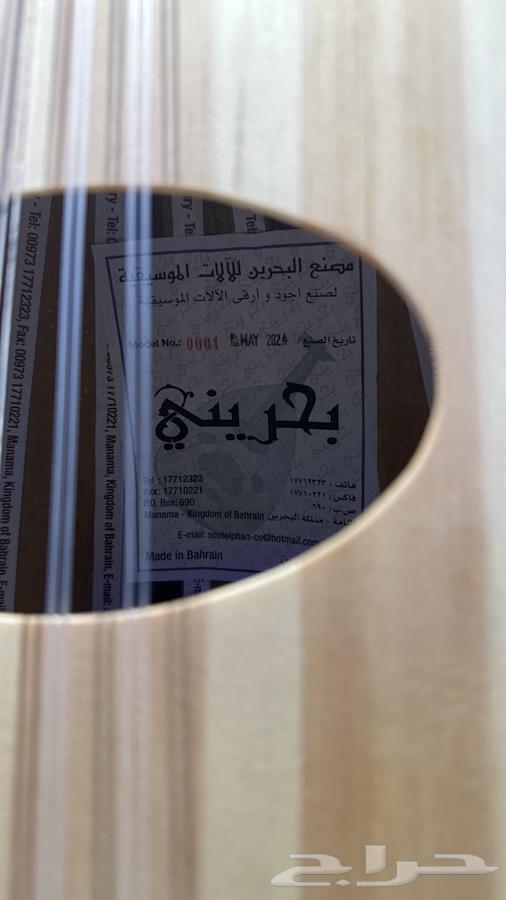 مصنع البحرين للآلات الموسيقية
لصنع اجود و أرقى الآلات الموسيقية
Model No.: 0001 MAY 2024 تاريخ الصنع:
بحريني
Tel : 17712323 هاتف : ١٧٧١٢٣٢٣
Fax: 17710221 فاكس : ١٧٧١٠٢٢١
P.O. Box: 690 ص.ب : ٦٩٠
Manama - Kingdom of Bahrain مملكة البحرين
E-mail: soutelphan-co@hotmail.com
Made in Bahrain
Tel: 00973 17712323, Fax: 00973 17710221, Manama, Kingdom of Bahrain, E-mail:
00973 17710221, Manama, Kingdom of Bahrain, E-mail:
حراج